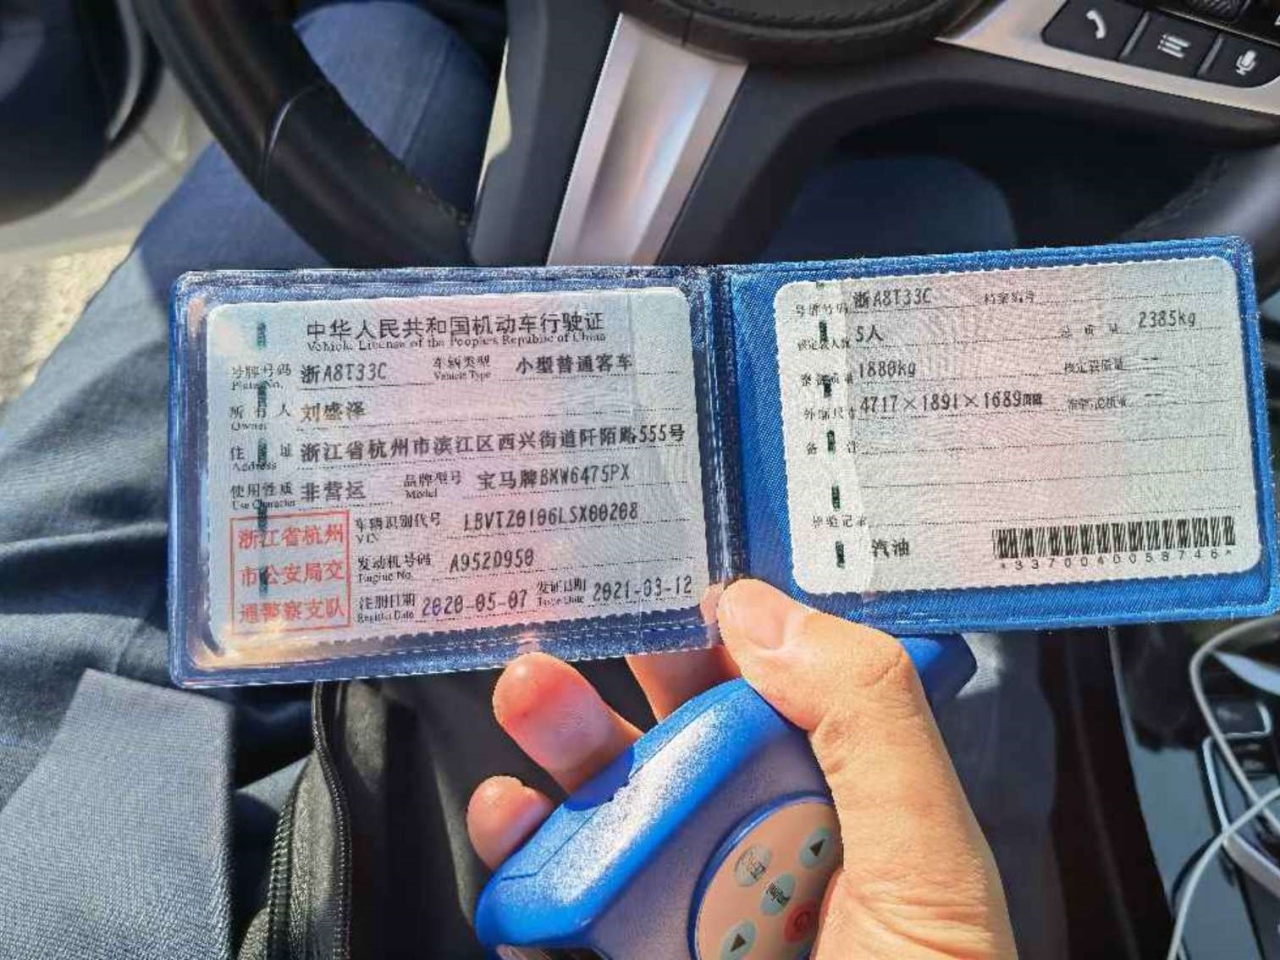 中华人民共和国机动车行驶证
Vehicle License of the People's Republic of China
号牌号码 浙A8T33C 车辆类型 小型普通客车
Plate No. Vehicle Type
所有人 刘盛泽
Owner
住址 浙江省杭州市滨江区西兴街道阡陌路555号
Address
使用性质 非营运 品牌型号 宝马牌BMW6475PX
Use Character Model
浙江省杭州
市公安局交
通警察支队
车辆识别代号 LBVTZ0106LSX00208
VIN
发动机号码 A9520950
Engine No.
注册日期 2020-05-07 发证日期 2021-03-12
Register Date Issue Date
号牌号码 浙A8T33C 档案编号
5人 总质量 2385kg
1880kg
外廓尺寸 4717×1891×1689
备注
检验记录
汽油
*3370040058746*